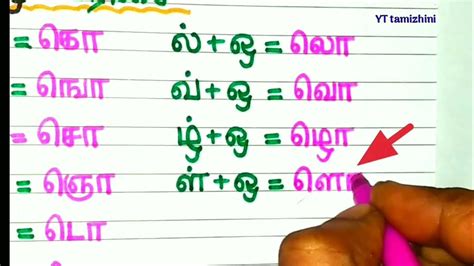 YT tamizhini
= கொ ல் + ஒ = லொ
= ஙொ வ் + ஒ = வொ
= சொ ழ் + ஒ = ழொ
= ஞொ ள் + ஒ = ளொ
= டொ